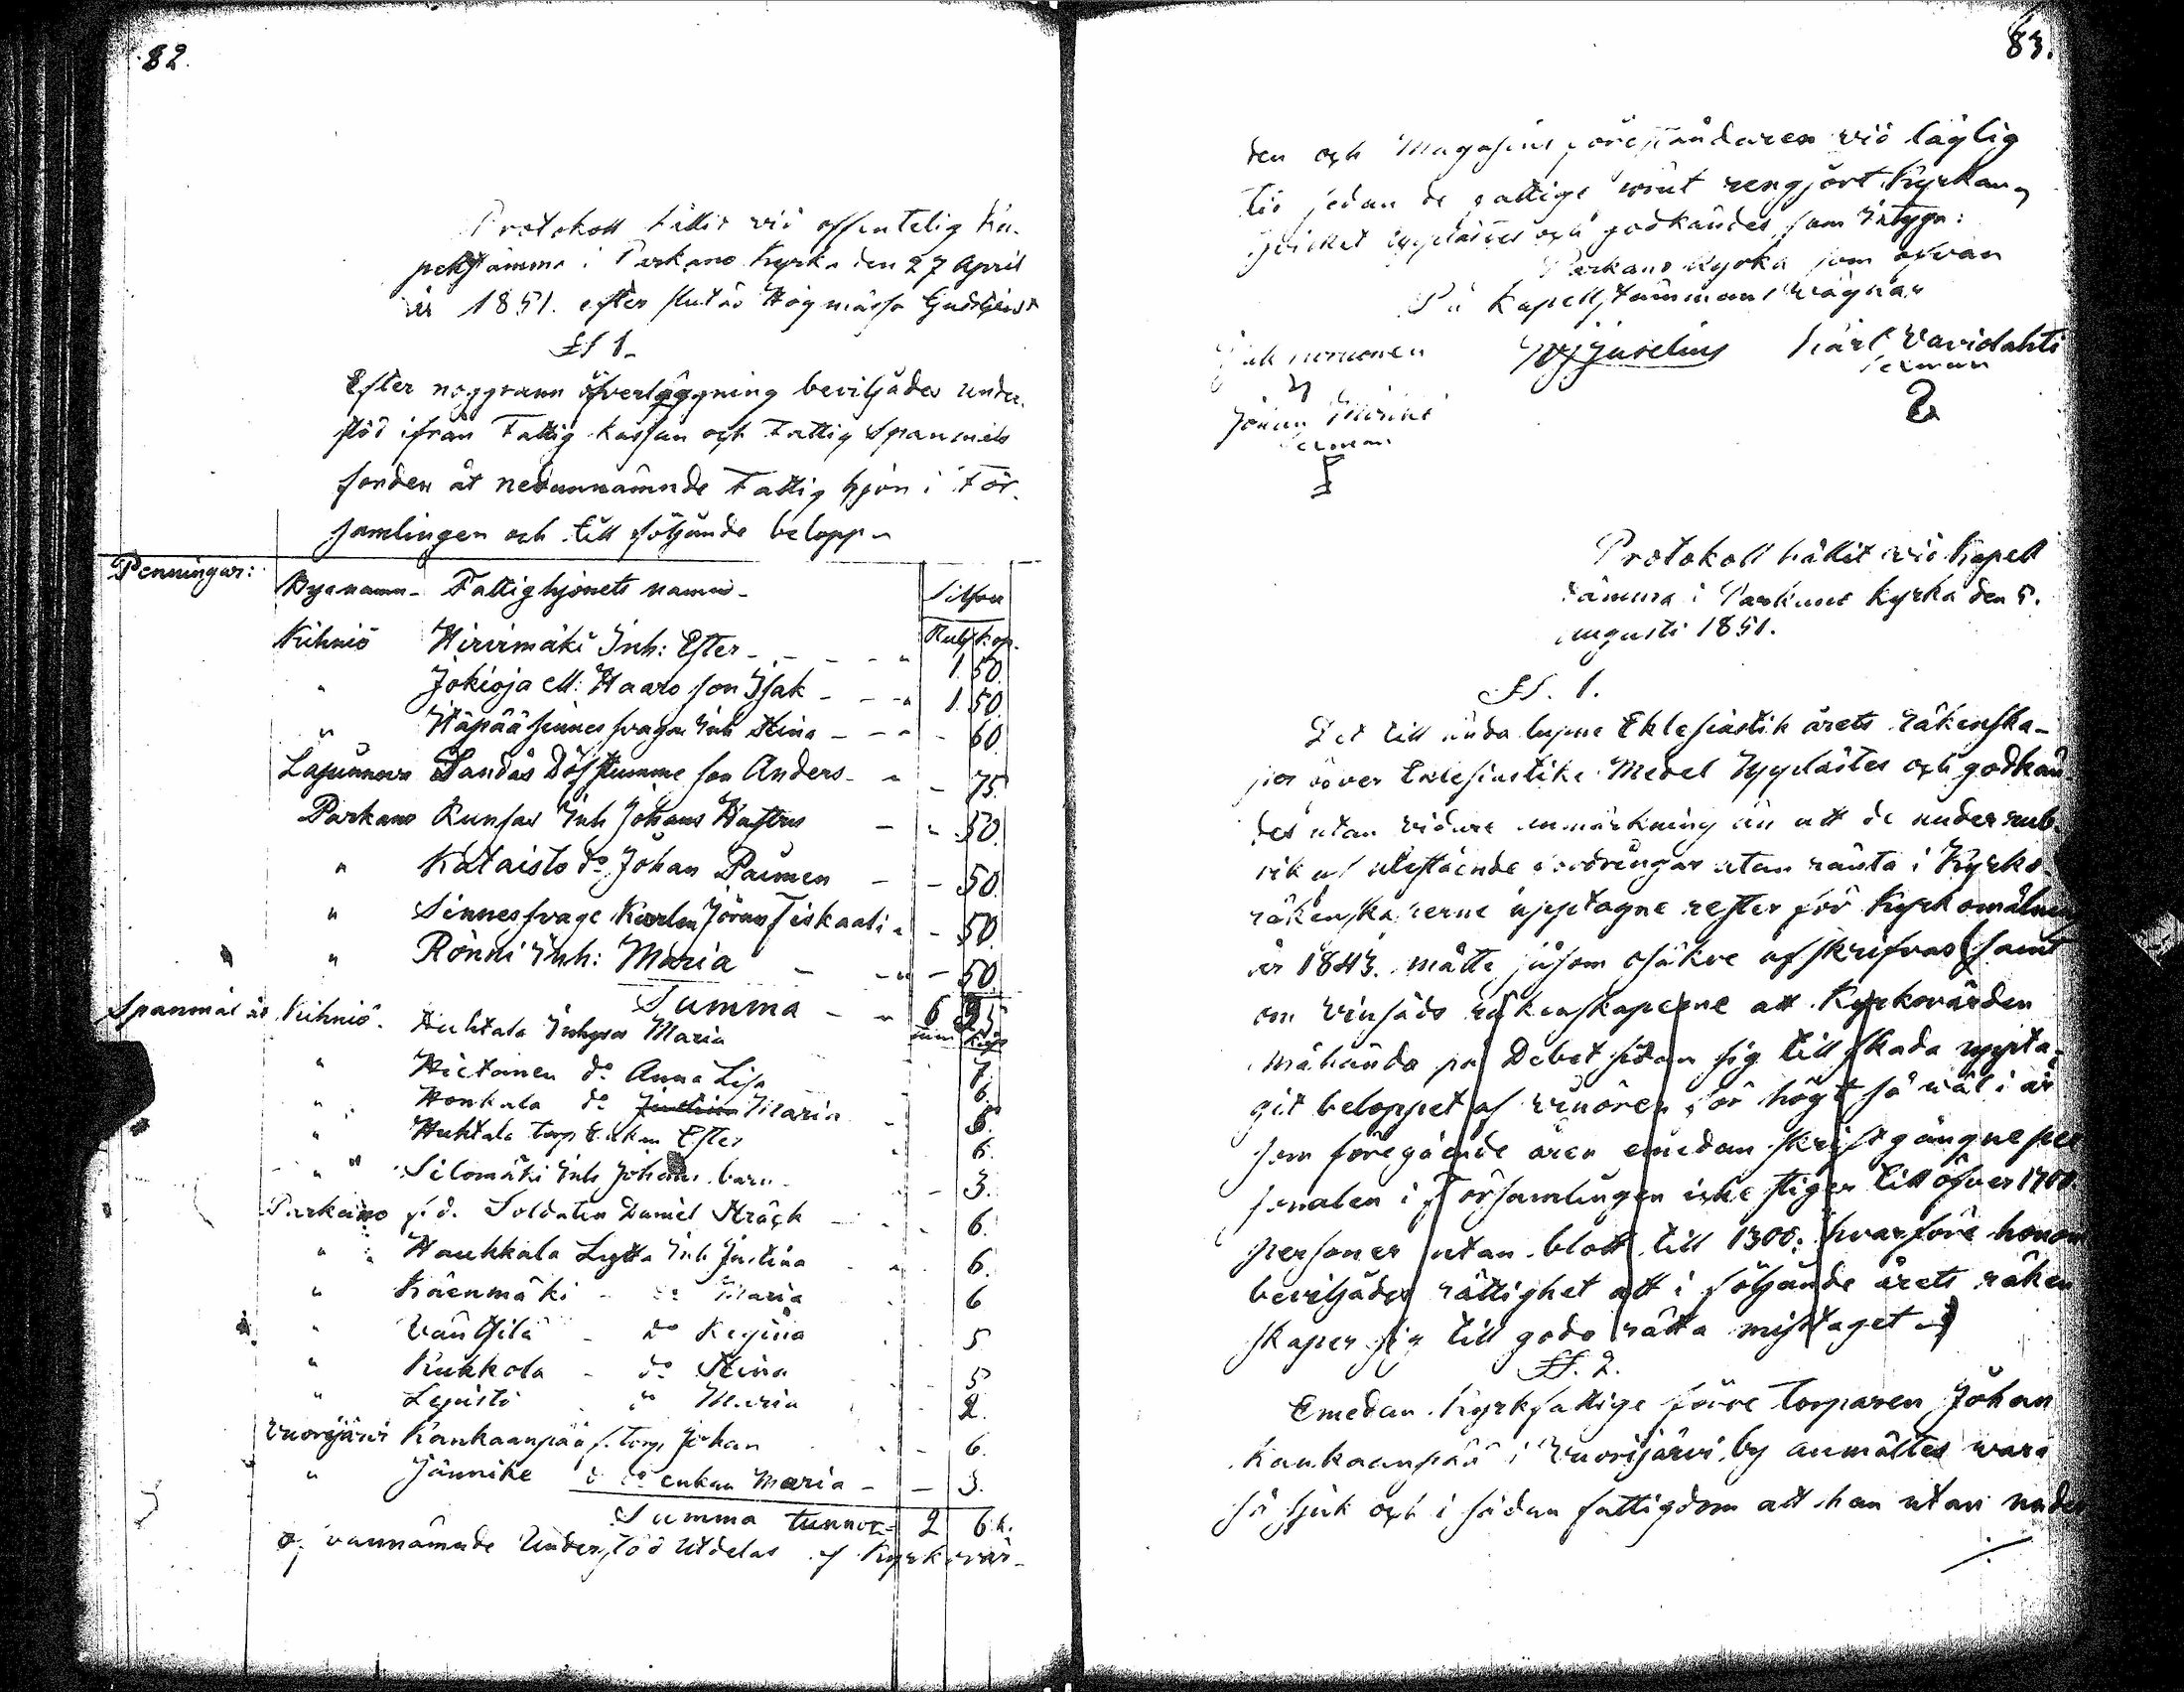 82.
Protokoll hållit vid offentelig Ka-
pellstämma i Parkano Kyrka den 27 April
år 1851. efter slutad Högmässo Gudstjenst
§§ 1.
Efter noggrann öfverläggning beviljades under-
stöd ifrån Fattig kassan och Fattig Spanmåls
fonden åt nedannämnde Fattig hjon i För-
samlingen och till följande belopp.
Penningar:
Byanamn. Fattighjonets namn. Silfver
Rub. Kop.
Kihniö Hirvimäki Inh: Ester 1. 50.
" Jokioja ell: Haaro son Isak 1. 50.
" Häpää sinnessvaga Inh Stina 60.
Lapunneva Sandås Döfstumme son Anders 75.
Parkano Runsas Inh Johans Hustru 50.
" Kataisto do Johan 50.
" Sinnessvage Karlen Jöran Fiskaali 50.
" Rönni Inh: Maria 50.
Summa 6 25
Spanmål åt Kihniö. Huhtala Inhyses Maria
" Hietanen do Anna Lisa 7.
" Honkala do Maria 6.
" Huhtala torp Enkan Ester 6.
" Silomäki Inh Johans barn 3.
Parkano f.d. Soldaten Daniel Sträck 6.
" Haukkala Lytta Inh Justina 6.
" Käenmäki do Maria 6
" Väntsilä do Regina 5
" Kukkola do Stina 5
" Lepistö " Maria 2.
Vuorijärvi Kankaanpää f. torp Johan 6.
" Jännike d do enkan Maria 3.
Summa tunnor 2 6 k.
Ofvannämnde Understöd utdelas af Kyrkovär-
83.
den och Magasins föreståndaren vid läglig
tid sedan de fattige rengjort Kyrkan,
hvilket upplästes och godkändes, som intyga:
Parkano Kyrka som ofvan
På Kapellstämmans Vägnar
Karl Vavidahti
Sexman
Johan
Sexman
Protokoll hållit vid Kapell
stämma i Parkano Kyrka den 5.
Augusti 1851.
§§. 1.
Det till ända lupne Eklesiastik årets räkenska-
per öfver Eklesiastike Medel Upplästes och godkän
des utan vidare anmärkning än att de under rub-
rik af utestående fordringar utan ränta i Kyrko-
räkenskaperne upptagne rester för Kyrkomålning
år 1843. måtte såsom osäkre afskrifvas samt
om Vinsäds räkenskaperne att Kyrkovärden
måhända på Debet sidan sig till skada uppta-
git beloppet af vinören för högt så väl i år
som föregående åren emedan skriftgångne per
sonalen i Församlingen icke stiger till öfver 1700
personer utan blott till 1300: hvarföre honom
beviljades rättighet att i följande årets räken
skaper sig till godo rätta misstaget.
§§. 2.
Emedan Kyrkfattige förre Torparen Johan
Kankaanpää i Vuorijärvi by anmältes vara
så sjuk och i sådan fattigdom att han utan under